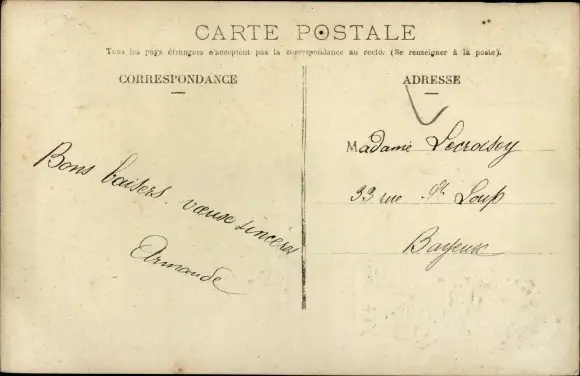 CARTE POSTALE
Tous les pays étrangers n'acceptent pas la correspondance au recto. (Se renseigner à la poste).
CORRESPONDANCE
ADRESSE
Madame Lecroisey
33 rue St Loup
Bayeux
Bons baisers, vœux sincères
Armande